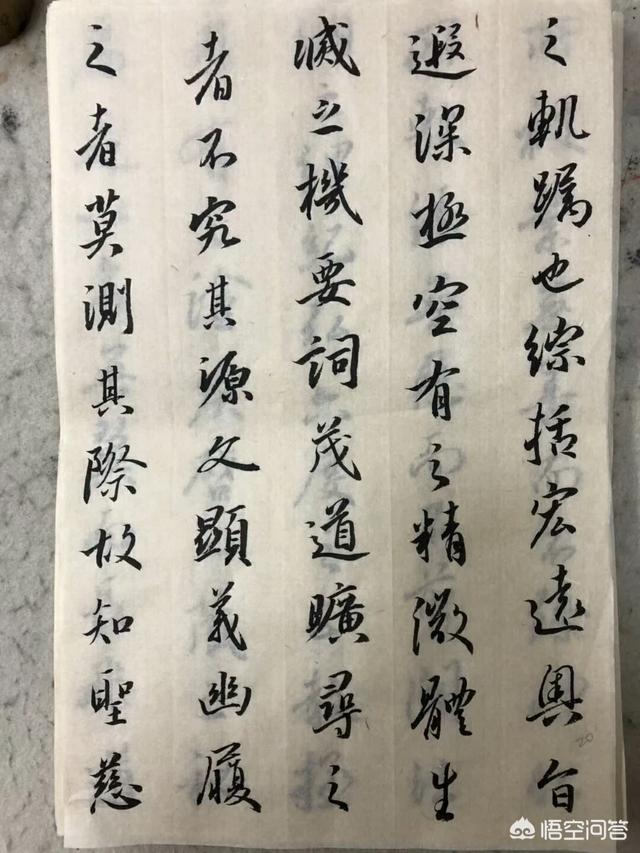 之軌躅也綜括宏遠奧旨
遐深極空有之精微體生
滅之機要詞茂道曠尋之
者不究其源文顯義幽履
之者莫測其際故知聖慈
20
悟空问答